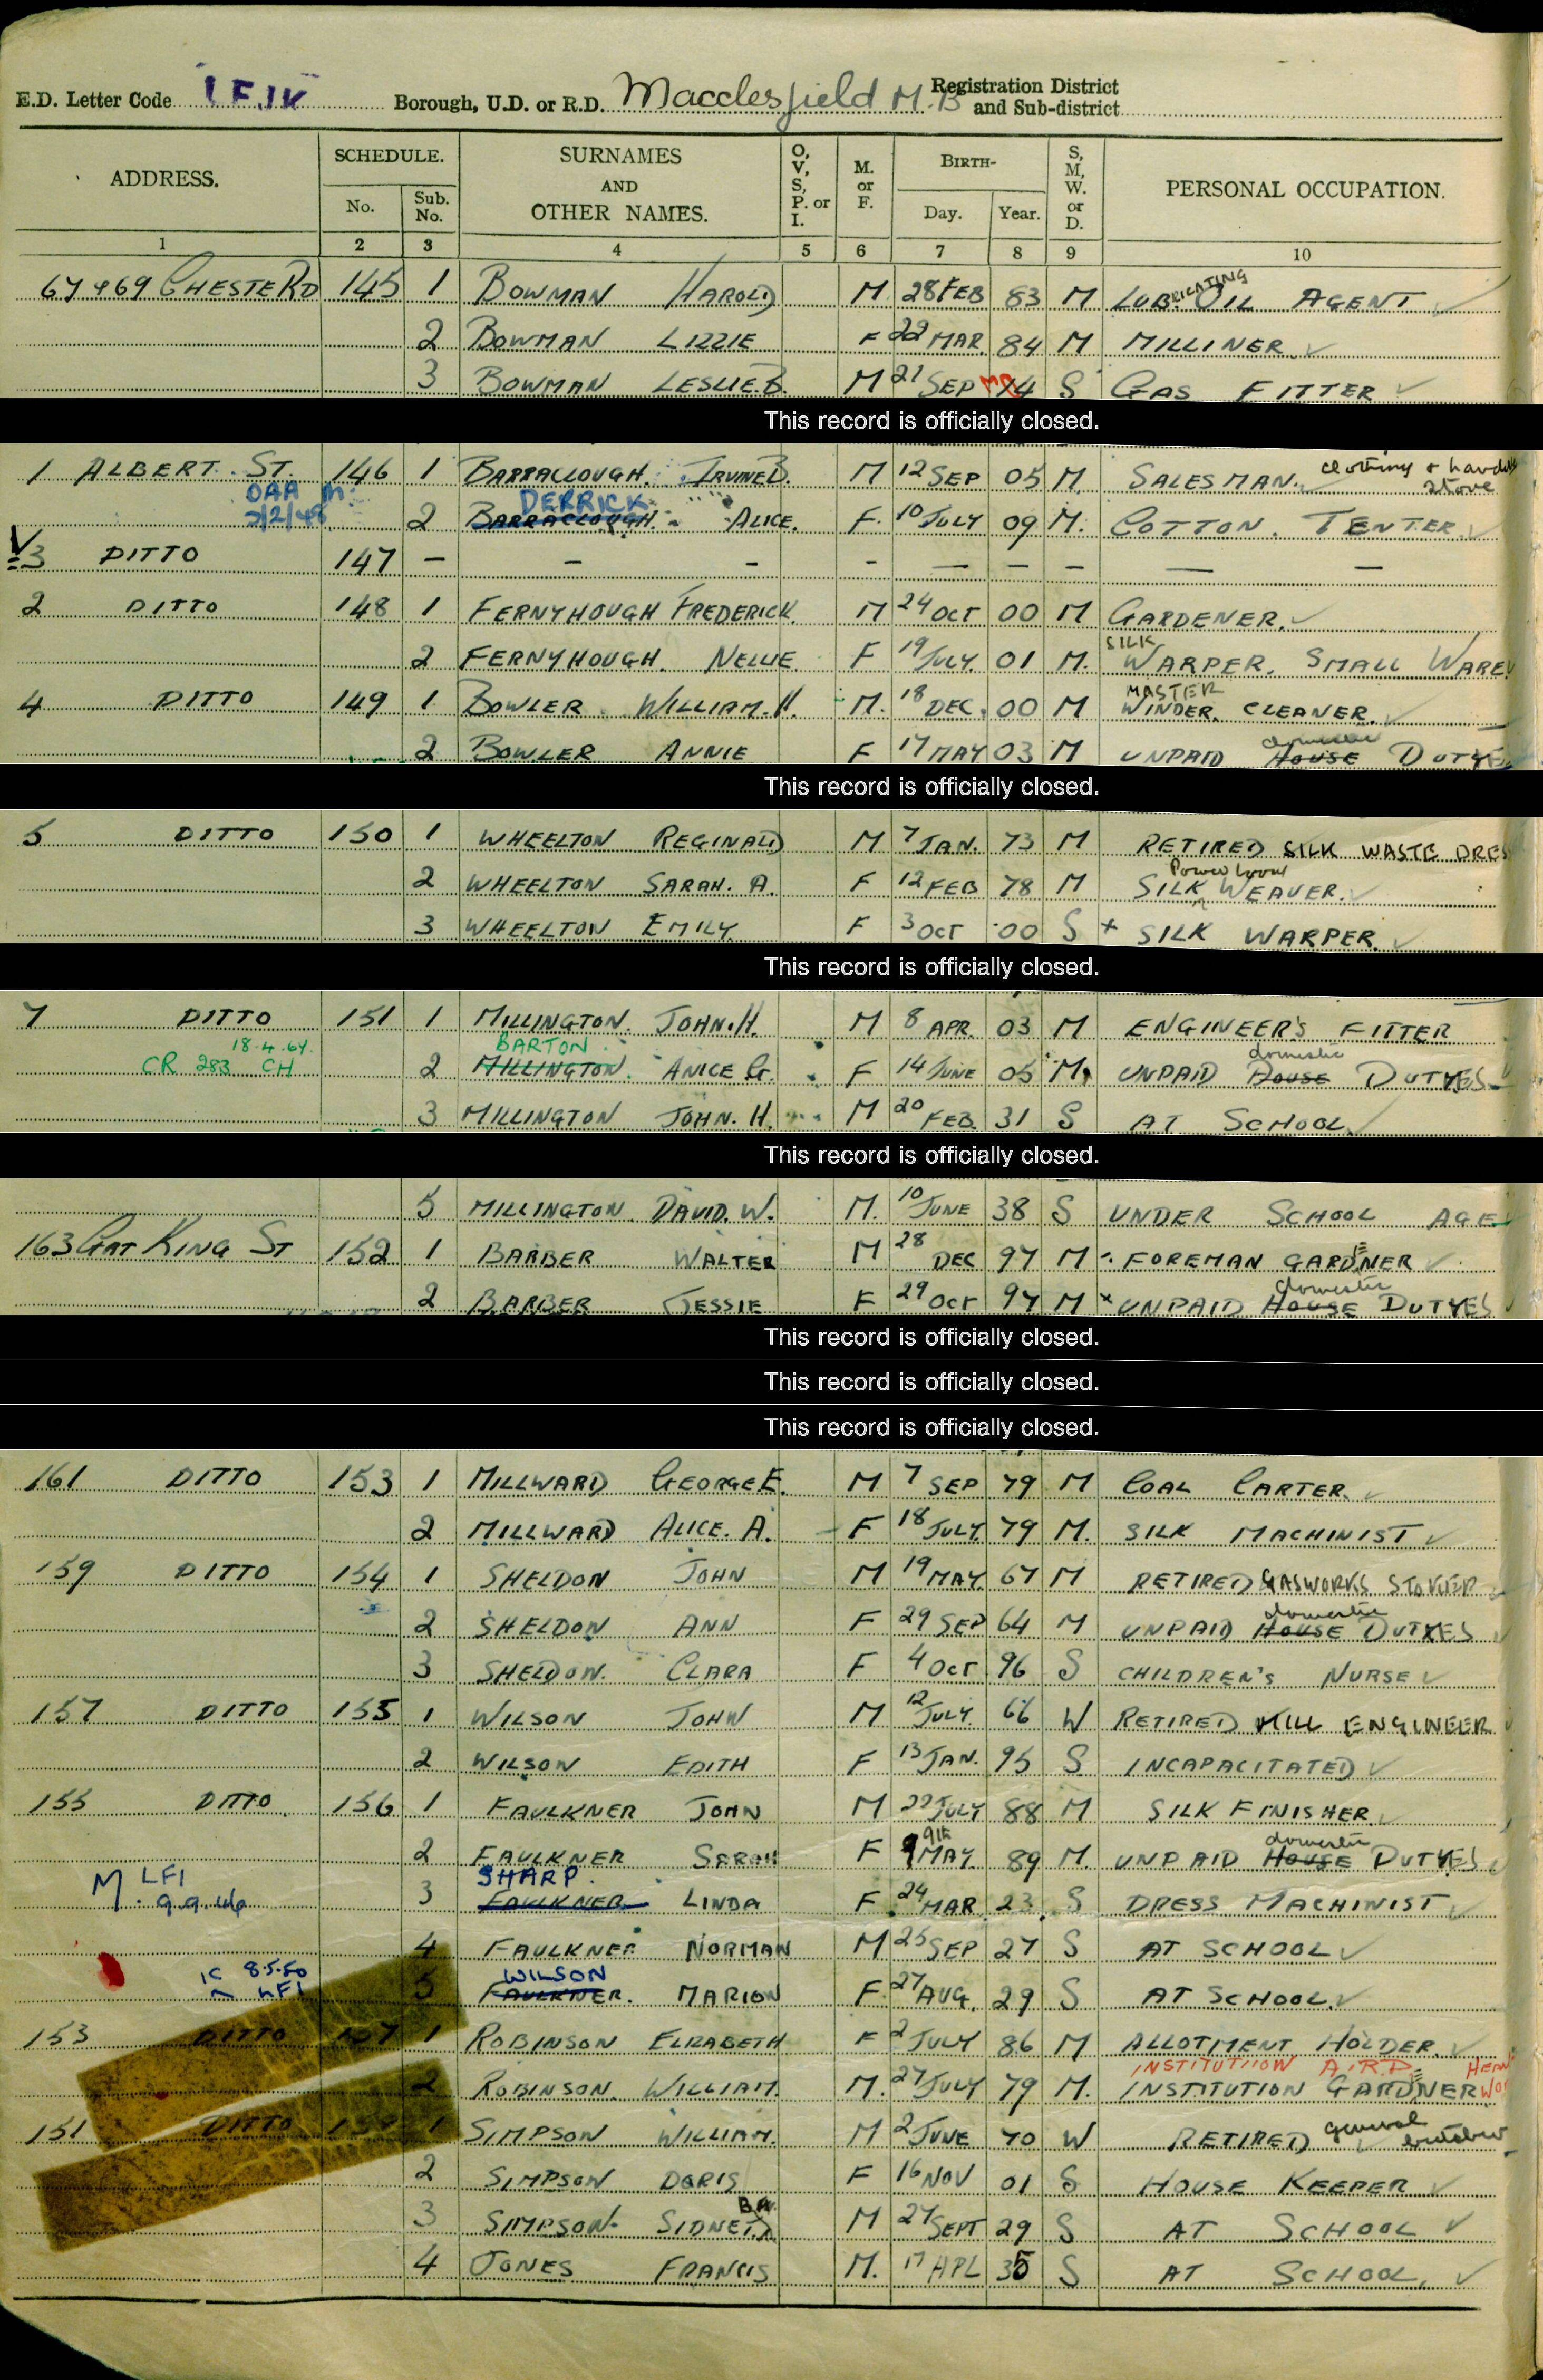 E.D. Letter Code LFJK Borough, U.D. or R.D. Macclesfield M.B Registration District and Sub-district
ADDRESS. SCHEDULE. No. Sub. No. SURNAMES AND OTHER NAMES. O, V, S, P. or I. M. or F. BIRTH- Day. Year. S, M, W. or D. PERSONAL OCCUPATION.
1 2 3 4 5 6 7 8 9 10
67 & 69 CHESTE RD 145 1 BOWMAN HAROLD M 28 FEB 83 M LUBRICATING OIL AGENT
2 BOWMAN LIZZIE F 22 MAR 84 M MILLINER
3 BOWMAN LESLIE.B. M 21 SEP 14 S GAS FITTER
This record is officially closed.
1 ALBERT. ST. 146 1 BARRACLOUGH. IRVINE B. M 12 SEP 05 M. SALESMAN. clothing &
OAA DERRICK
2 BARRACLOUGH. ALICE. F. 10 JULY 09 M. COTTON. TENTER.
V 3 DITTO 147 – – – – — – – — –
2 DITTO 148 1 FERNYHOUGH FREDERICK. M 24 OCT 00 M GARDENER.
SILK
2 FERNYHOUGH. NELLIE F 19 JULY. 01 M. WARPER. SMALL WARE
MASTER
4 DITTO 149 1 BOWLER WILLIAM.H. M. 18 DEC. 00 M WINDER. CLEANER.
domestic
2 BOWLER ANNIE F 17 MAY 03 M UNPAID HOUSE DUTYES
This record is officially closed.
5 DITTO 150 1 WHEELTON REGINALD M 7 JAN. 73 M RETIRED SILK WASTE DRES
Power loom
2 WHEELTON SARAH. A. F 12 FEB 78 M SILK WEAVER.
3 WHEELTON EMILY. F 3 OCT 00 S + SILK WARPER.
This record is officially closed.
7 DITTO 151 1 MILLINGTON. JOHN.H. M 8 APR. 03 M ENGINEER'S FITTER
18.4.64. BARTON domestic
CR 283 CH 2 MILLINGTON. ANICE G. F 14 JUNE 05 M. UNPAID HOUSE DUTYES
3 MILLINGTON JOHN. H. M 20 FEB. 31 S AT SCHOOL.
This record is officially closed.
5 MILLINGTON. DAVID. W. M. 10 JUNE 38 S UNDER SCHOOL AGE
163 GRT KING ST 152 1 BARBER WALTER M 28 DEC 97 M FOREMAN GARDNER
domestic
2 BARBER JESSIE F 29 OCT 97 M x UNPAID HOUSE DUTYES
This record is officially closed.
This record is officially closed.
This record is officially closed.
161 DITTO 153 1 MILLWARD GEORGE E. M 7 SEP 79 M COAL CARTER.
2 MILLWARD ALICE. A. F 18 JULY. 79 M. SILK MACHINIST
159 DITTO 154 1 SHELDON JOHN M 19 MAY. 67 M RETIRED GASWORKS STOKER
domestic
2 SHELDON ANN F 29 SEP 64 M UNPAID HOUSE DUTYES
3 SHELDON. CLARA F 4 OCT 96 S CHILDREN'S NURSE
157 DITTO 155 1 WILSON JOHN M 12 JULY. 66 W RETIRED MILL ENGINEER
2 WILSON EDITH F 13 JAN. 95 S INCAPACITATED
155 DITTO. 156 1 FAULKNER JOHN M 22 JULY 88 M SILK FINISHER.
9th domestic
2 FAULKNER SARAH F 9 MAY. 89 M. UNPAID HOUSE DUTYES
M. LFI 9.9.46 SHARP.
3 FAULKNER LINDA F. 24 MAR. 23. S DRESS MACHINIST
4 FAULKNER NORMAN M 25 SEP 27 S AT SCHOOL
8.5.50 WILSON
LFI 5 FAULKNER. MARION F. 27 AUG. 29 S AT SCHOOL.
153 DITTO 157 1 ROBINSON ELIZABETH F 2 JULY 86 M ALLOTMENT HOLDER.
INSTITUTION A.R.P.
2 ROBINSON. WILLIAM. M. 27 JULY 79 M. INSTITUTION GARDNER
151 DITTO 158 1 SIMPSON WILLIAM. M 2 JUNE 70 W RETIRED general
2 SIMPSON DORIS F 16 NOV 01 S HOUSE KEEPER
3 SIMPSON. SIDNEY M 27 SEPT 29 S AT SCHOOL
4 JONES FRANCIS M. 17 APL 35 S AT SCHOOL.